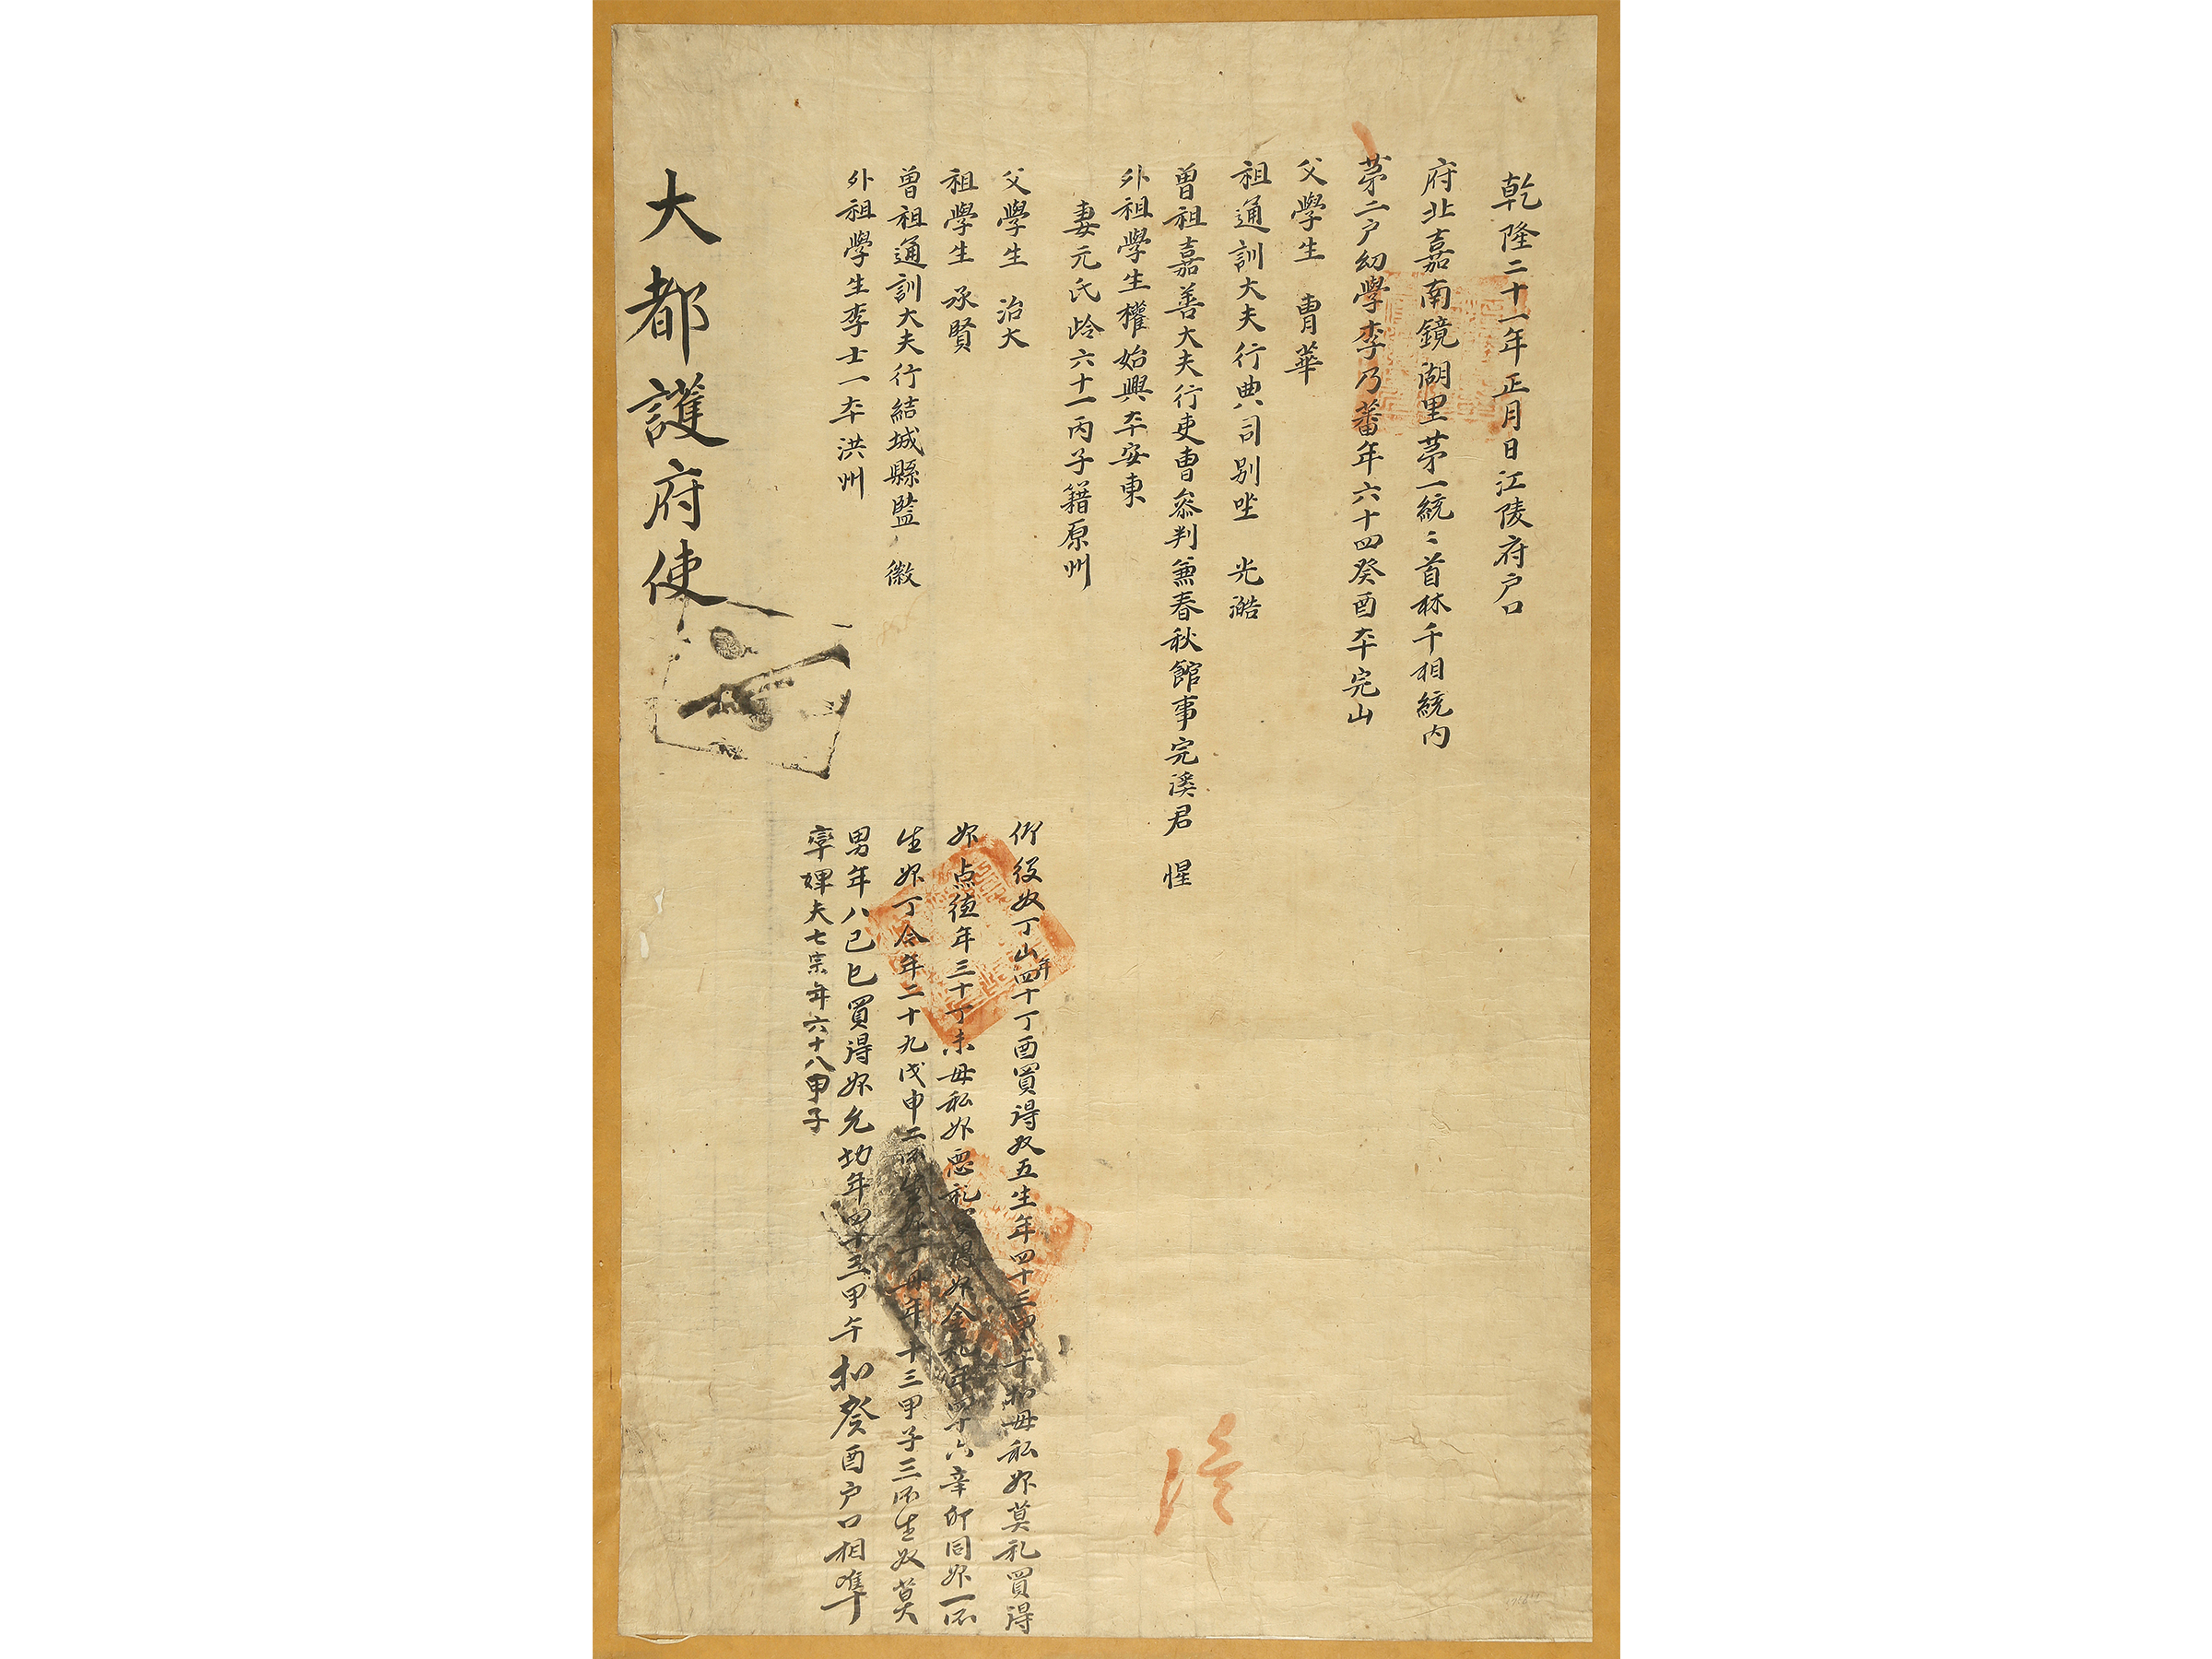 乾隆二十一年正月日江陵府户口
府北嘉南鏡湖里苐一統〻首林千相統内
苐二户幼學李乃蕃年六十四癸酉夲完山
父學生 曺華
祖通訓大夫行典司别坐 光澔
曽祖嘉善大夫行吏曺叅判兼春秋館事完溪君 惺
外祖學生權始興夲安東
妻元氏齡六十一丙子籍原州
父學生 治大
祖學生 承賢
曽祖通訓大夫行結城縣監 徽
外祖學生李士一夲洪州
仰役奴丁山年四十丁酉買得奴五生年四十三甲午 母私婢莫礼買得
婢点德年三十丁未母私婢 礼買得婢金礼年四十六辛卯同婢一所
生婢丁今年二十九戊申二所生 丁 年十三甲子三所生奴莫
男年八己巳買得婢允 年四十三甲午 癸酉户口相凖
率婢夫七宗年六十八甲子
大都護府使